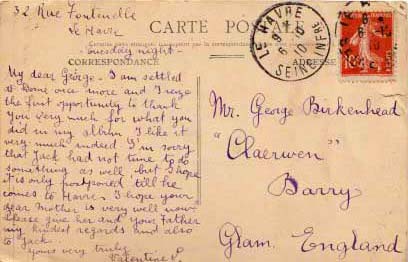 32 Rue Fontenelle
Le Havre
Tuesday night.
CARTE POSTALE
CORRESPONDANCE
ADRESSE
My dear George. I am settled
at home once more and I seize
the first opportunity to thank
you very much for what you
did in my album. I like it
very much indeed. I'm sorry
that Jack had not time to do
something as well, but I hope
it is only postponed till he
comes to Havre. I hope your
dear mother is very well now.
Please give her and your Father
my kindest regards and also
to Jack.
yours very truly
Valentine P.
LE HAVRE
SEINE INFRE
10
Mr. George Birkenhead
"Claerwen"
Barry
Glam. England